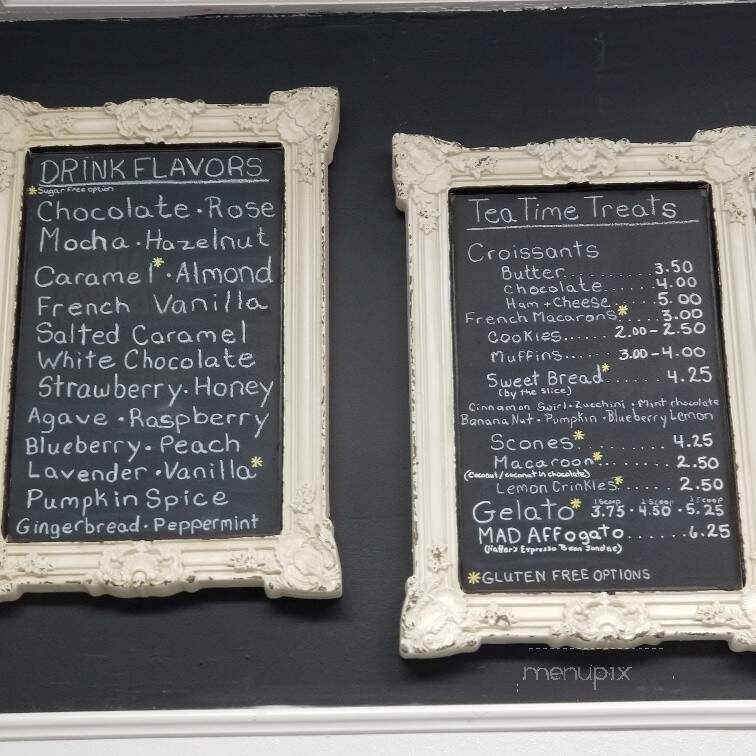 DRINK FLAVORS
*Sugar Free option
Chocolate · Rose
Mocha · Hazelnut
Caramel* · Almond
French Vanilla
Salted Caramel
White Chocolate
Strawberry · Honey
Agave · Raspberry
Blueberry · Peach
Lavender · Vanilla*
Pumpkin Spice
Gingerbread · Peppermint
Tea Time Treats
Croissants
Butter.........3.50
Chocolate......4.00
Ham + Cheese.....5.00
French Macarons*.....3.00
Cookies......2.00-2.50
Muffins......3.00-4.00
Sweet Bread*......4.25
(by the slice)
Cinnamon Swirl · Zucchini · Mint chocolate
Banana Nut · Pumpkin · Blueberry Lemon
Scones*.........4.25
Macaroon*........2.50
(Coconut/coconut in chocolate)
Lemon Crinkles*......2.50
1 Scoop 2 Scoop 3 Scoop
Gelato* 3.75 · 4.50 · 5.25
MAD Affogato.......6.25
(Hatter's Espresso Bean Sundae)
*GLUTEN FREE OPTIONS
menupix